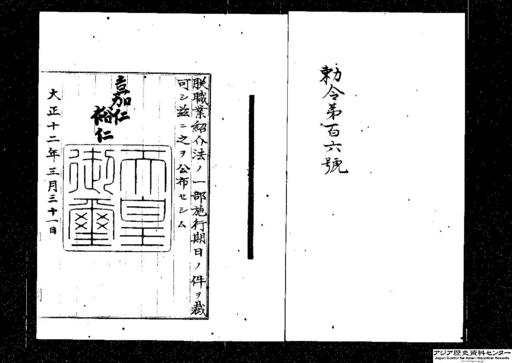 勅令第百六號
朕職業紹介法ノ一部施行期日ノ件ヲ裁
可シ茲ニ之ヲ公布セシム
嘉仁
裕仁
天皇
御璽
大正十二年三月三十一日
アジア歴史資料センター
Japan Center for Asian Historical Records